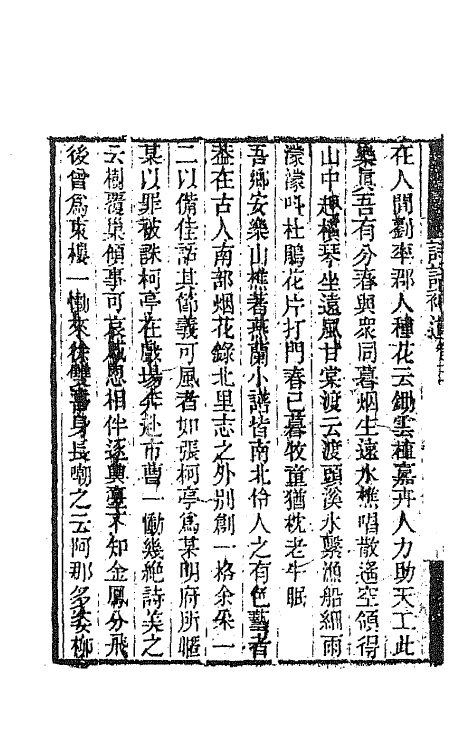 詩話補遺卷三
在人間劉奉郡人種花云鋤雲種嘉卉人力助天工此
樂眞吾有分春與衆同暮烟生遠水樵唱散遙空領得
山中趣橫琴坐遠風甘棠渡云渡頭溪水繫漁船細雨
濛濛呌杜鵑花片打門春已暮牧童猶枕老牛眠
吾鄉安樂山樵著燕蘭小譜皆南北伶人之有色藝者
蓋在古人南部烟花錄北里志之外別創一格余采一
二以備佳話其節義可風者如張柯亭爲某明府所暱
某以罪被誅柯亭在戲場奔赴市曹一慟幾絶詩美之
云樹覆巢傾事可哀感恩相伴逐輿臺不知金鳳分飛
後曾爲東樓一慟來徐雙喜身長嘲之云阿那多姿柳